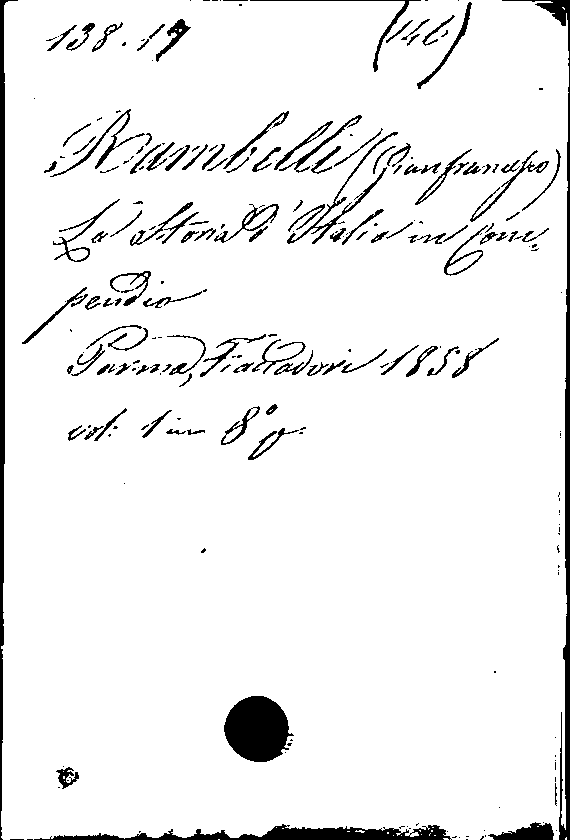 138.17 (146)
Rambelli (Gianfrancesco)
La Storia d'Italia in Com-
pendio
Parma, Fiaccadori 1858
vol: 1 in 8° g.